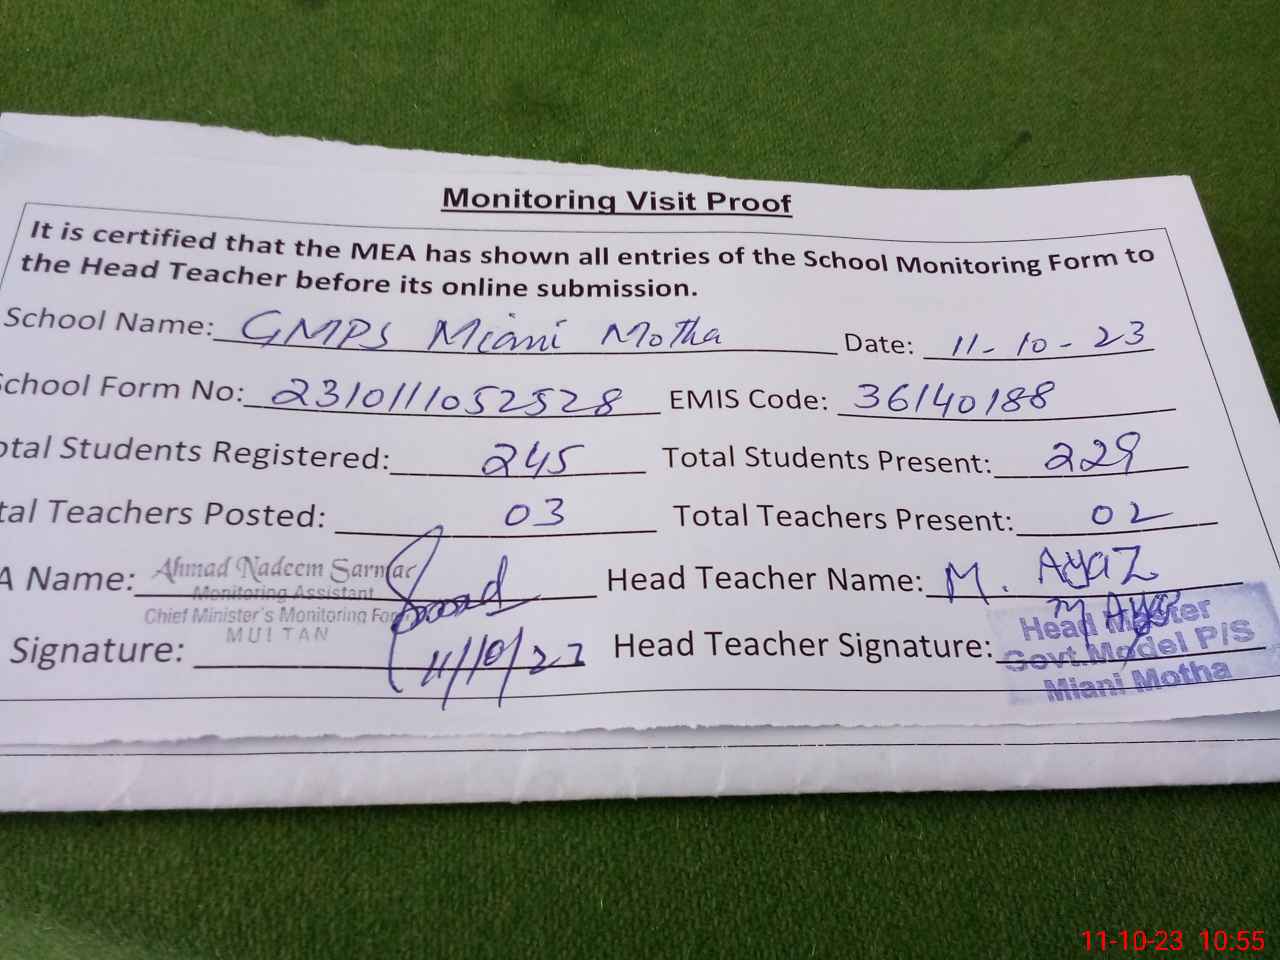 Monitoring Visit Proof
It is certified that the MEA has shown all entries of the School Monitoring Form to
the Head Teacher before its online submission.
School Name: GMPS Miani Motha Date: 11-10-23
School Form No: 2310111052528 EMIS Code: 36140188
otal Students Registered: 245 Total Students Present: 229
tal Teachers Posted: 03 Total Teachers Present: 02
A Name: Ahmad Nadeem Sarmac Head Teacher Name: M. Ayaz
Monitoring Assistant
Chief Minister's Monitoring For
MULTAN
Signature: 11/10/23 Head Teacher Signature: M Aya
Head Master
Govt. Model P/S
Miani Motha
11-10-23 10:55